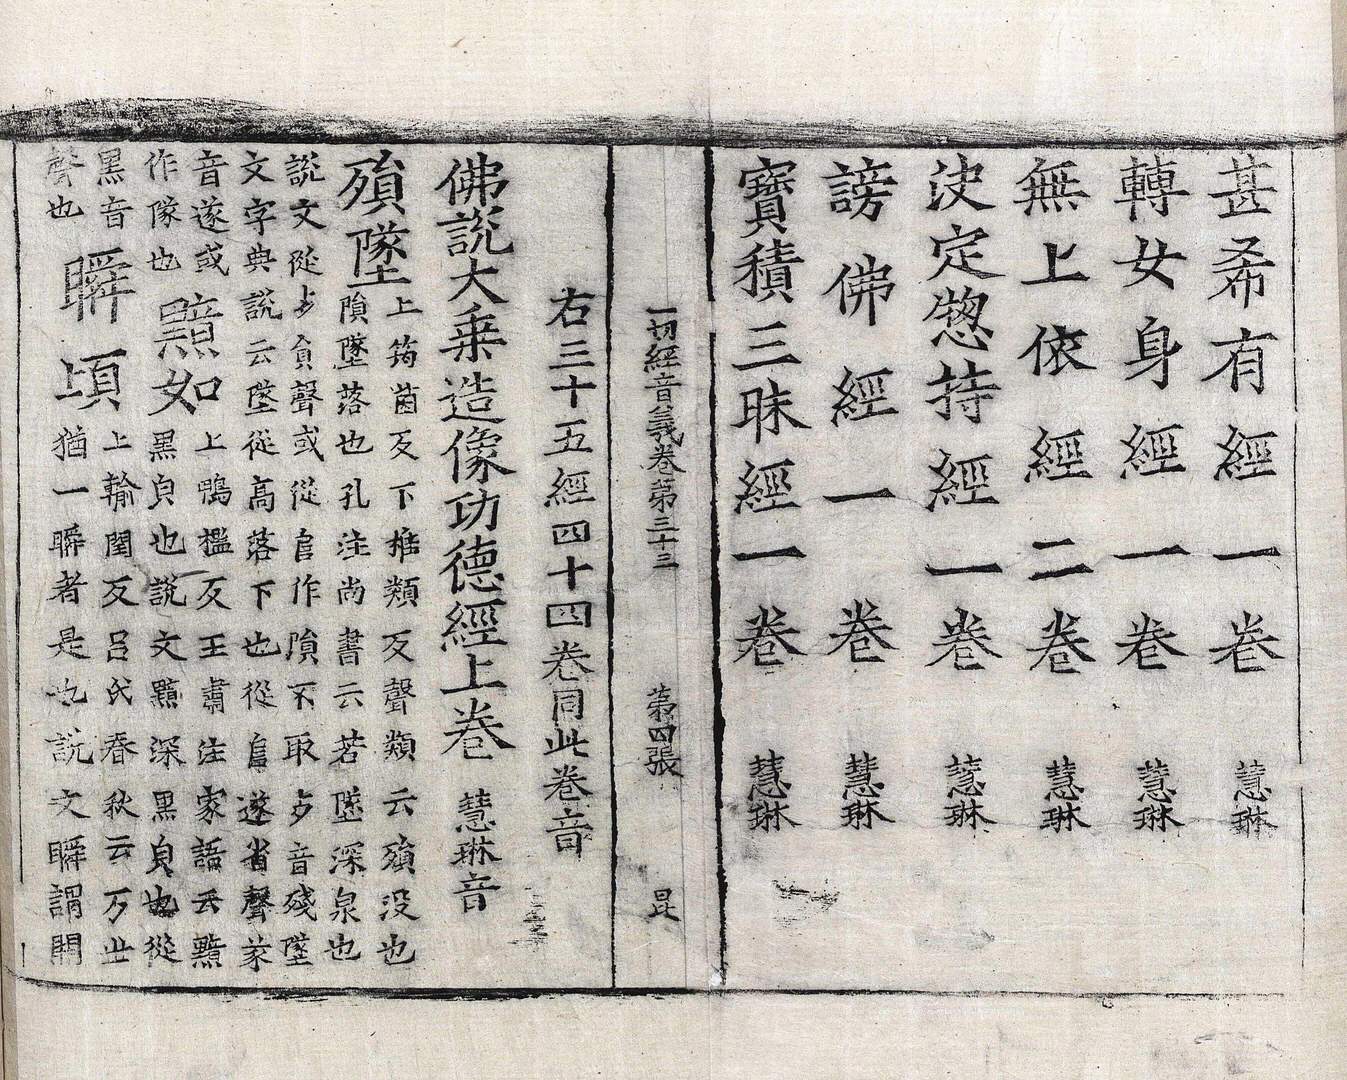 甚希有經一卷 慧琳
轉女身經一卷 慧琳
無上依經二卷 慧琳
決定惣持經一卷 慧琳
謗佛經一卷 慧琳
寶積三昧經一卷 慧琳
一切經音義卷第三十三 第四張 昆
右三十五經四十四卷同此卷音
佛說大乘造像功德經上卷 慧琳音
殞墜 上筠菌反下搥類反聲類云殞没也
隕墜落也孔注尚書云若墜深泉也
說文從歺員聲或從𨸏作隕不取歺音殘墜
文字典說云墜從高落下也從𨸏遂省聲篆
音遂或
作隊也 黯如 上鴨檻反王肅注家語云黯
黑皃也說文黯深黑皃也從
黑音
聲也 瞬頃 上輸閏反呂氏春秋云万世
猶一瞬者是也說文瞬謂開